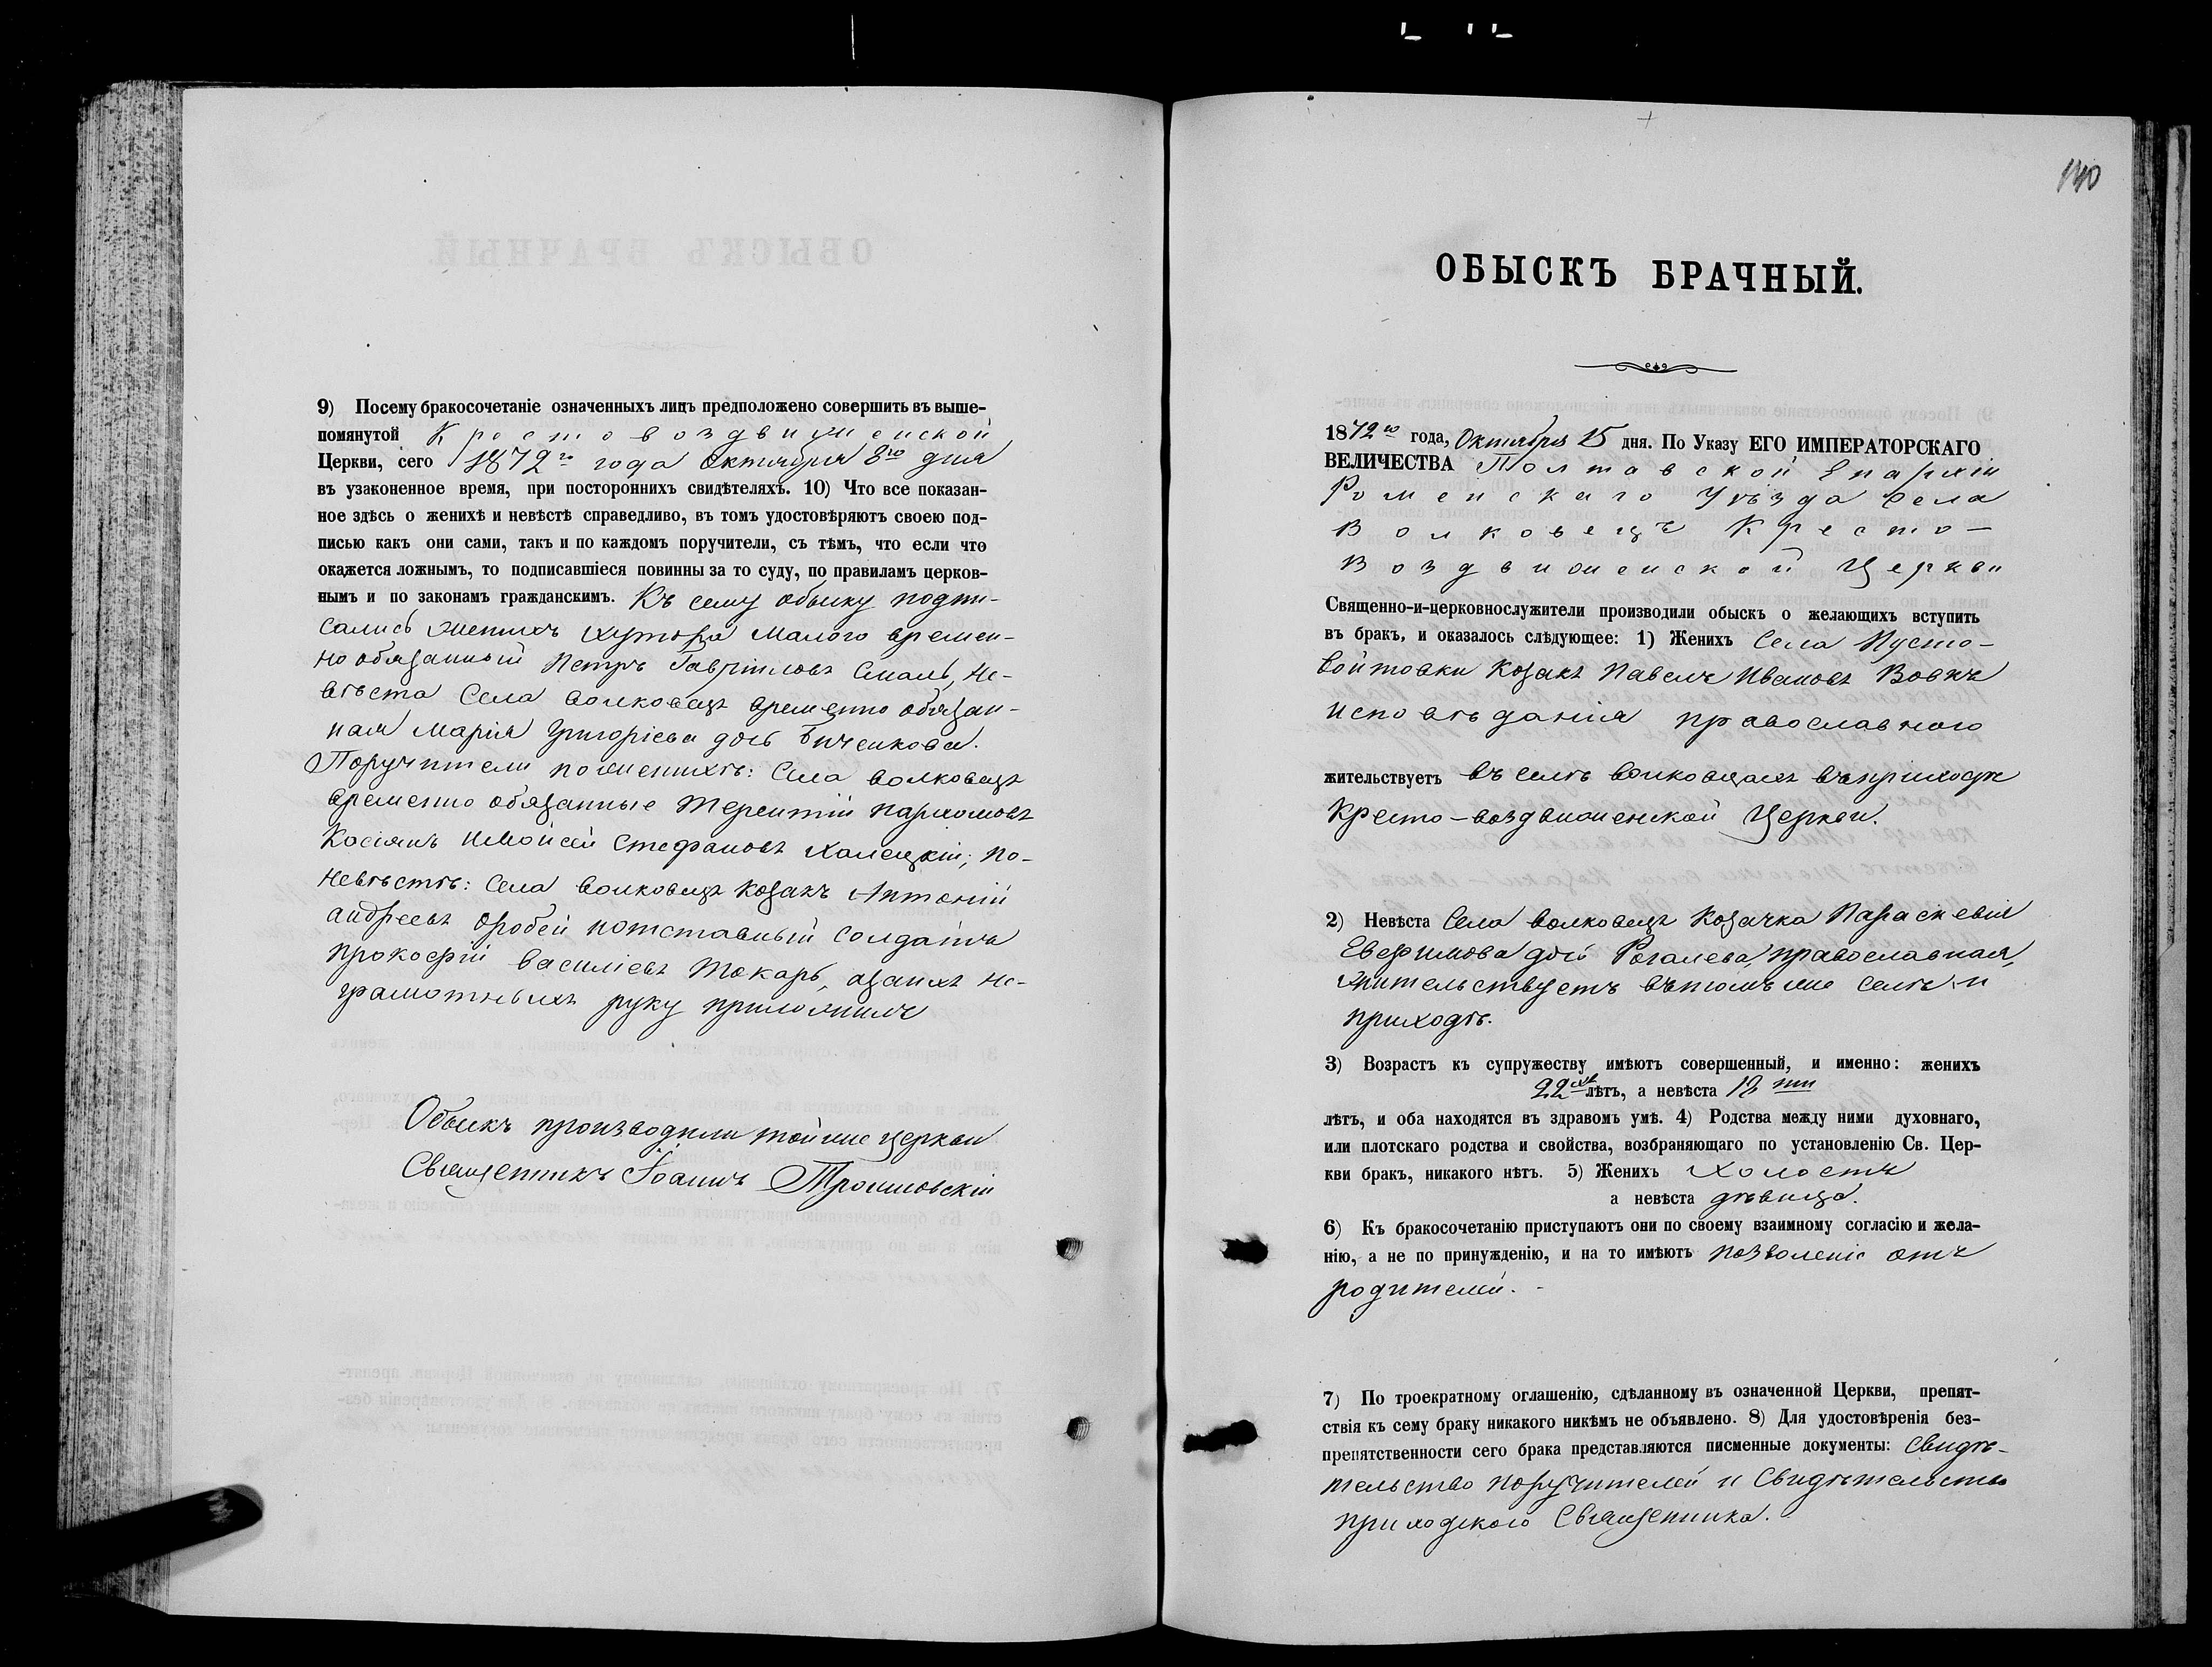 9) Посему бракосочетаніе означенныхъ лицъ предположено совершить въ выше-
помянутой Крестовоздвиженской
Церкви, сего 1872го года Октября 8го дня
въ узаконенное время, при постороннихъ свидѣтеляхъ. 10) Что все показан-
ное здѣсь о женихѣ и невѣстѣ справедливо, въ томъ удостовѣряютъ своею под-
писью какъ они сами, такъ и по каждомъ поручители, съ тѣмъ, что если что
окажется ложнымъ, то подписавшіеся повинны за то суду, по правиламъ церков-
нымъ и по законамъ гражданскимъ. Къ сему обыску подпи-
сались Женихъ хутора Малого времен-
но обязанный Петръ Гавріиловъ не-
вѣста Села Волковецъ временно обязан-
ная Марія Григоріева дочь Биченкова.
Поручители по женихѣ: Села Волковецъ
временно обязанные Терентій Пархомовъ
Косіянъ и Мойсей Стефановъ Халецкій; по-
невѣстѣ: Села Волковецъ Козакъ Антоній
андреевъ Оробей и отставный солдатъ
Прокофій Василіевъ Токарь, а за ихъ не-
грамотныхъ руку приложилъ
Обыскъ производили той же церкви
Священникъ Іоаннъ
140
ОБЫСКЪ БРАЧНЫЙ.
1872го года, Октября 15 дня. По Указу ЕГО ИМПЕРАТОРСКАГО
ВЕЛИЧЕСТВА Полтавской Епархіи
Роменскаго Уѣзда Села
Волковецъ Кресто-
Воздвиженской Церкви
Священно-и-церковнослужители производили обыскъ о желающихъ вступить
въ бракъ, и оказалось слѣдующее: 1) Женихъ Села Пусто-
войтовки Козакъ Павелъ Ивановъ Вовкъ
исповѣданія православного
жительствуетъ въ селѣ Волковцахъ въ приходѣ
Кресто-воздвиженской Церкви.
2) Невѣста Села Волковецъ Козачка Параскевія
Евфимова дочь Рогалева, православная,
жительствуетъ въ томъ же селѣ и
приходѣ.
3) Возрастъ къ супружеству имѣютъ совершенный, и именно: женихъ
22хъ лѣтъ, а невѣста 18ти
лѣтъ, и оба находятся въ здравомъ умѣ. 4) Родства между ними духовнаго,
или плотскаго родства и свойства, возбраняющаго по установленію Св. Цер-
кви бракъ, никакого нѣтъ. 5) Женихъ Холостъ
а невѣста дѣвица.
6) Къ бракосочетанію приступаютъ они по своему взаимному согласію и жела-
нію, а не по принужденію, и на то имѣютъ позволеніе отъ
родителей.
7) По троекратному оглашенію, сдѣланному въ означенной Церкви, препят-
ствія къ сему браку никакого никѣмъ не объявлено. 8) Для удостовѣренія без-
препятственности сего брака представляются писменные документы: Свидѣ-
тельство поручителей и Свидѣтельство
приходского Священника.